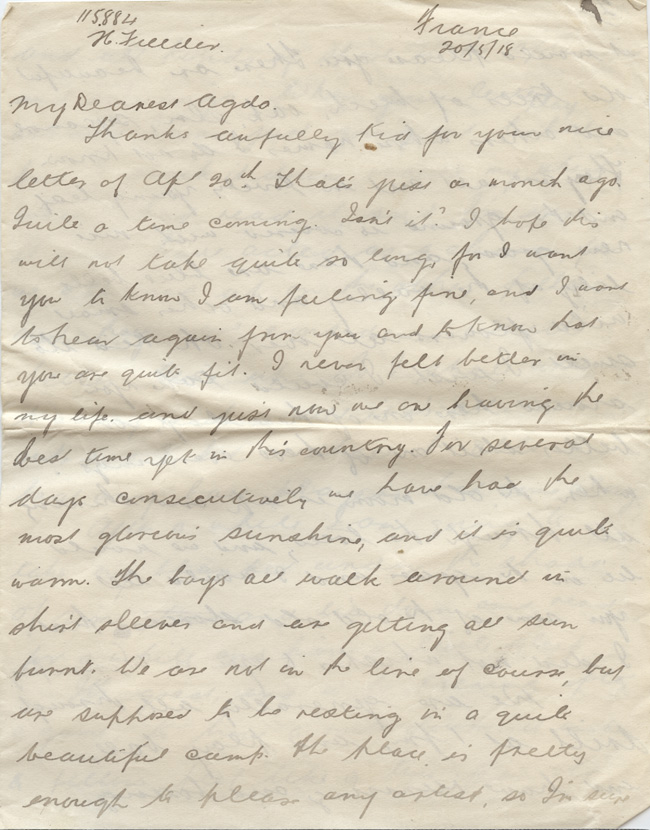 115884
H. Fielder.
France
20/5/18
My Dearest Agdo.
Thanks awfully Kid for your nice
letter of Apl 20th That's just a month ago.
Quite a time coming. Isn't it? I hope this
will not take quite so long, for I want
you to know I am feeling fine, and I want
to hear again from you and to know that
you are quite fit. I never felt better in
my life. and just now we are having the
best time yet in this country. For several
days consecutively we have had the
most glorious sunshine, and it is quite
warm. The boys all walk around in
shirt sleeves and are getting all sun
burnt. We are not in the line of course, but
are supposed to be resting in a quite
beautiful camp. The place is pretty
enough to please any artist, so I'm sure